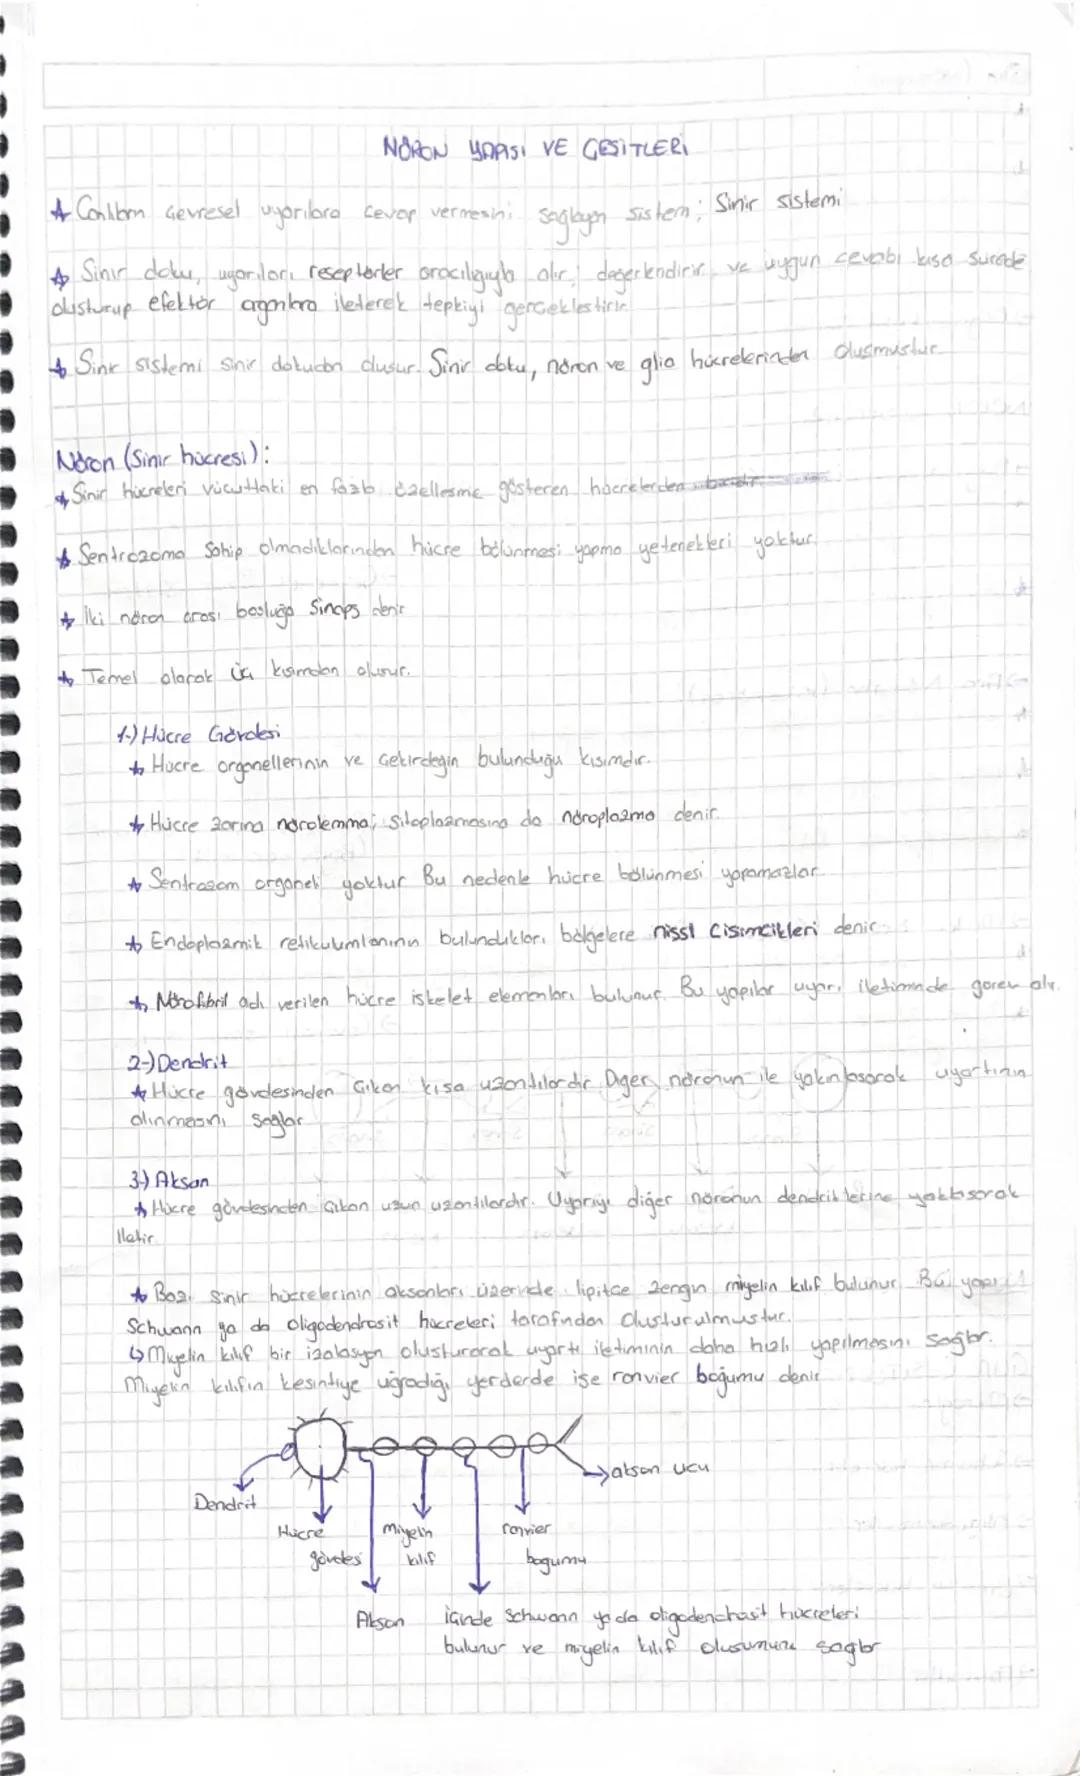 NÖRON YAPISI VE ÇEŞİTLERİ
Canlıların çevresel uyarılara cevap vermesini sağlayan sistem; Sinir sistemi
Sinir doku, uyarıları reseptörler aracılığıyla alır; değerlendirir ve uygun cevabı kısa sürede
oluşturup efektör organlara ileterek tepkiyi gerçekleştirir.
Sinir sistemi sinir dokudan oluşur. Sinir doku, nöron ve glia hücrelerinden oluşmuştur.
Nöron (Sinir hücresi):
Sinir hücreleri vücuttaki en fazla özelleşme gösteren hücrelerden
Sentrozoma sahip olmadıklarından hücre bölünmesi yapma yetenekleri yoktur.
İki nöron arası boşluğa Sinaps denir
Temel olarak üç kısımdan oluşur.
1-) Hücre Gövdesi
Hücre organellerinin ve çekirdeğin bulunduğu kısımdır.
Hücre zarına nörolemma; sitoplazmasına da nöroplazma denir.
Sentrozom organeli yoktur Bu nedenle hücre bölünmesi yapamazlar.
Endoplazmik retikulumlarının bulundukları bölgelere nissl cisimcikleri denir
Nörofibril adı verilen hücre iskelet elemanları bulunur. Bu yapılar uyarı iletiminde görev alır.
2-) Dendrit
Hücre gövdesinden çıkan kısa uzantılardır. Diğer nöronun ile yakınlaşarak uyartının
alınmasını sağlar
3-) Akson
Hücre gövdesinden çıkan uzun uzantılardır. Uyarıyı diğer nöronun dendritlerine yaklaşarak
iletir.
Bazı sinir hücrelerinin aksonları üzerinde lipitçe zengin miyelin kılıf bulunur. Bu yapı
Schwann ya da Oligodendrosit hücreleri tarafından oluşturulmuştur.
↳ Miyelin kılıf bir izolasyon oluşturarak uyartı iletiminin daha hızlı yapılmasını sağlar.
Miyelin kılıfın kesintiye uğradığı yerderde ise ranvier boğumu denir
akson ucu
Dendrit
Hücre miyelin ranvier
gövdesi kılıf boğumu
Akson içinde Schwann ya da oligodendrosit hücreleri
bulunur ve miyelin kılıf oluşumunu sağlar